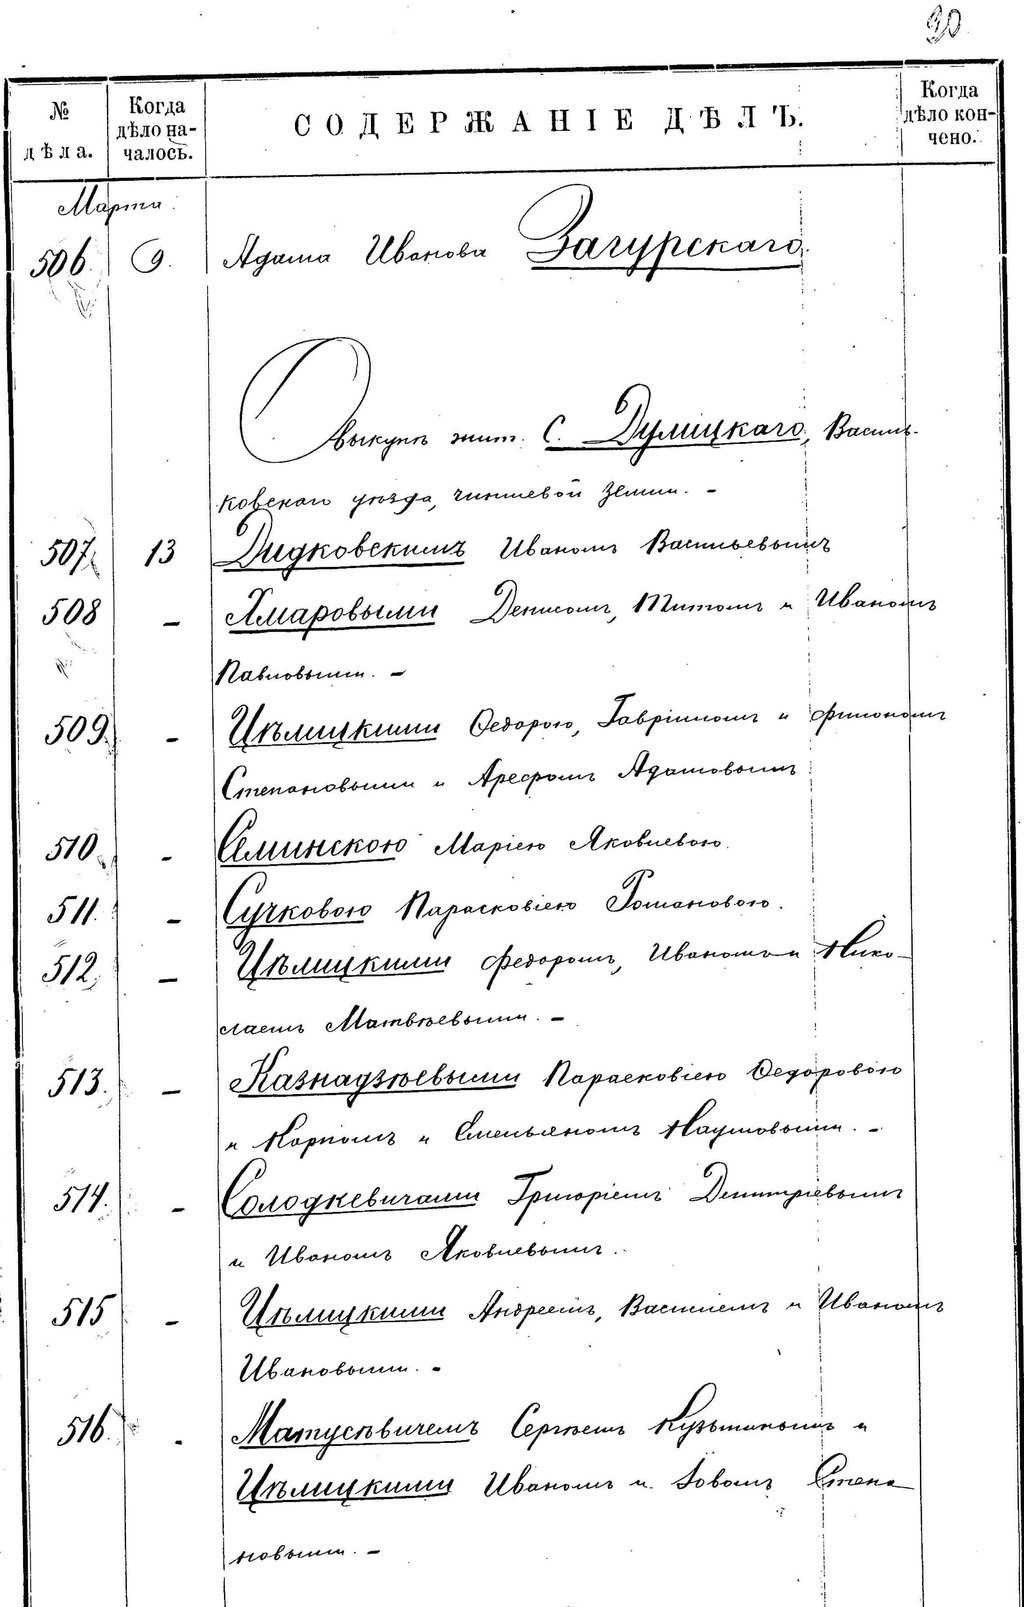 30
№ дѣла.
Когда дѣло на-
чалось.
СОДЕРЖАНІЕ ДѢЛЪ.
Когда дѣло кон-
чено.
Марта.
506. 9. Адама Иванова Загурскаго.
О выкупѣ жит. с. Дулицкаго, Василь-
ковскаго уѣзда, чиншевой земли. –
507. 13 Дидковскимъ Иваномъ Васильевымъ
508 – Ямаровыми Денисомъ, Титомъ и Иваномъ
Павловыми. –
509. – Цѣлицкими Ѳедорою, Гавріиломъ и Филономъ
Степановыми и Арефомъ Адамовымъ
510. – Семинскою Маріею Яковлевою.
511. – Сучковою Парасковіею Романовою.
512. – Цѣлицкими Федоромъ, Иваномъ и Нико-
лаемъ Матвѣевыми. –
513. – Казнадзѣевыми Парасковіею Ѳедоровою
и Карпомъ и Емельяномъ Наумовыми. –
514. – Солодкевичами Григоріемъ Димитріевымъ
и Иваномъ Яковлевымъ.
515 – Цѣлицкими Андреемъ, Василіемъ и Иваномъ
Ивановыми. –
516. – Матусѣвичемъ Сергѣемъ Кузьминымъ и
Цѣлицкими Иваномъ и Іовомъ Степа
новыми. –